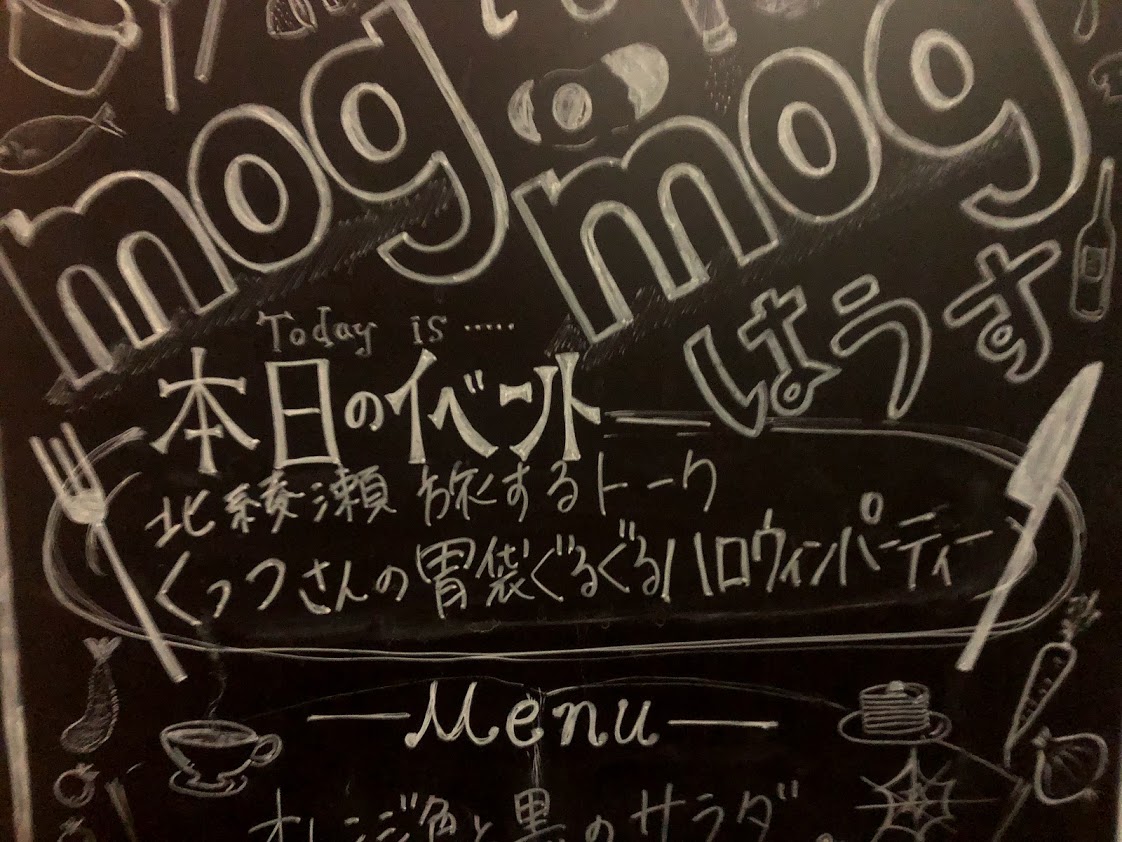 mog mog
はうす
Today is .....
本日のイベント
北綾瀬 旅するトーク
くっつさんの胃袋ぐるぐるハロウィンパーティー
Menu
オレンジ色と黒のサラダ